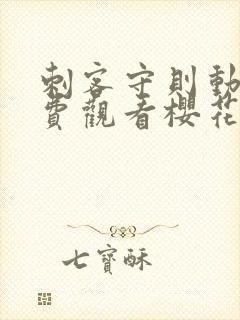 刺客守則動
費觀看櫻花
七寶酥